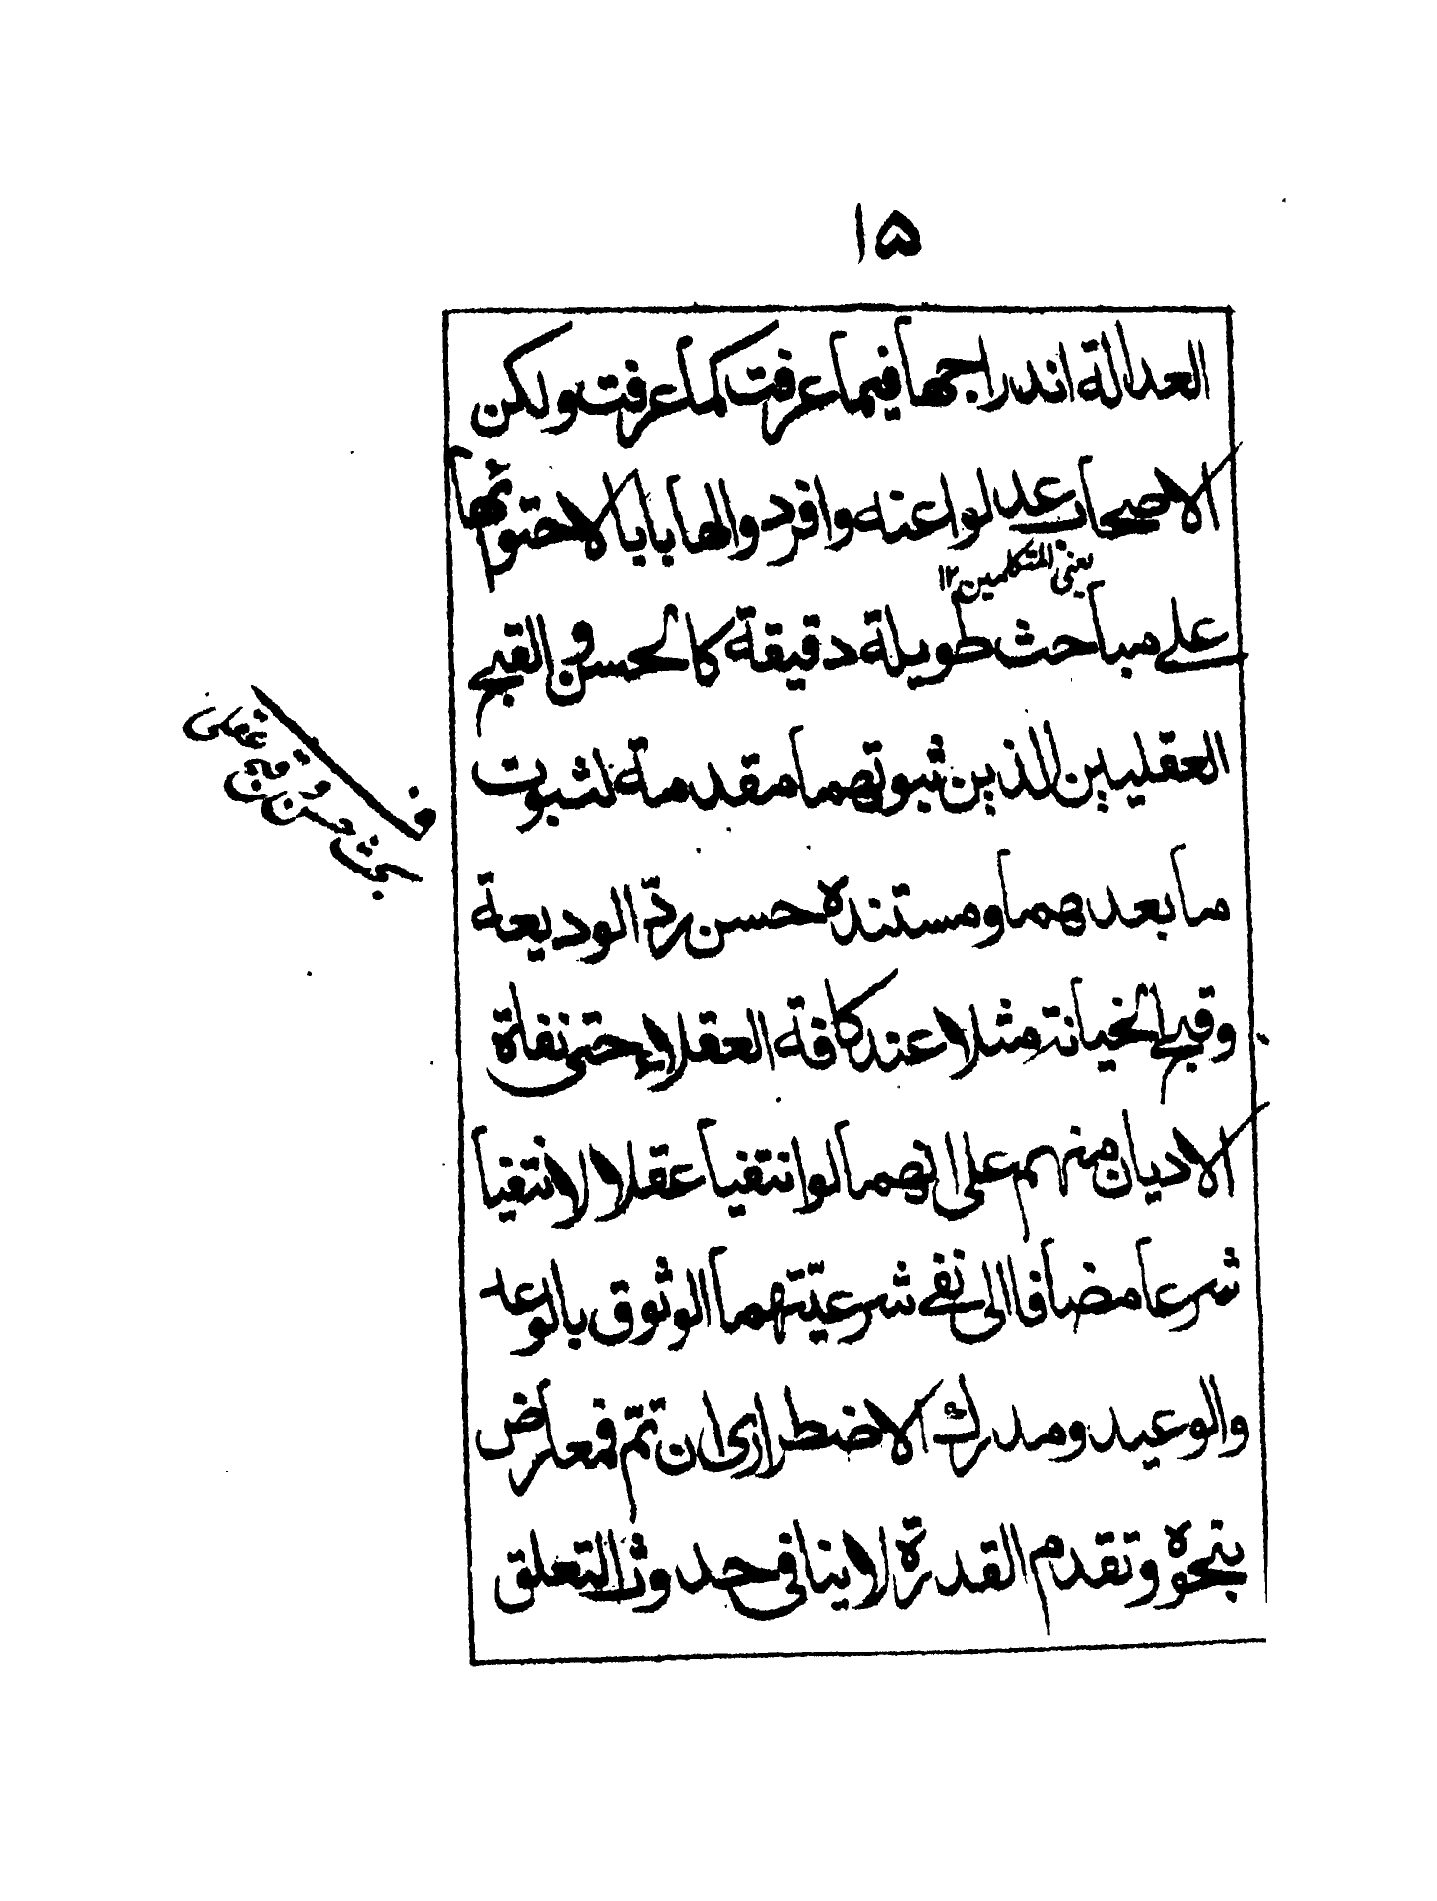 ۱۵
العدالة اندراجها فيما عرفت كما عرفت ولكن
الاصحاب عدلوا عنه وافردوا لها بابا لاحتوائها
يعني المتكلمين ۱۲
على مباحث طويلة دقيقة كالحسن والقبح
العقليين الذين ثبوتهما مقدمة لثبوت
ما بعدهما ومستنده حسن ردّ الوديعة
وقبح الخيانة مثلا عند كافة العقلاء حتى نفاة
الاديان منهم على انهما لو انتفيا عقلا لانتفيا
شرعا مضافا الى نفى شرعيّتهما الوثوق بالوعد
والوعيد ومدرك الاضطرارى ان تمّ فمعارض
بنحوه وتقدم القدرة لاينافى حدوث التعلق
ف
بحث حسن و قبح عقلى